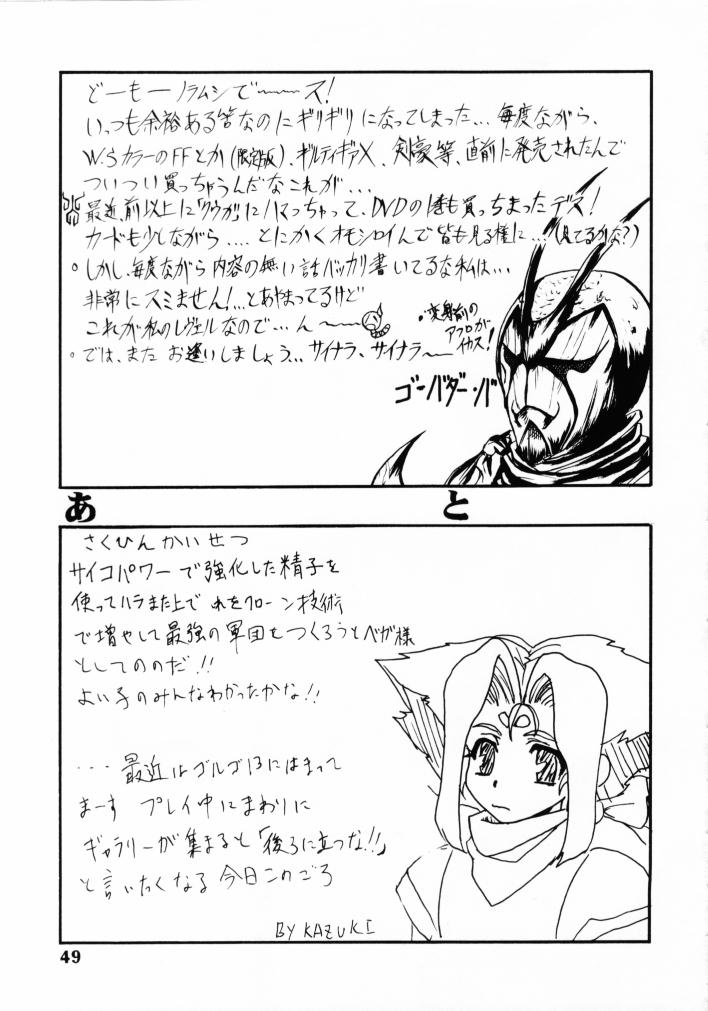 どーもー ノラムシでーーース!
いっつも余裕ある筈なのにギリギリになってしまった... 毎度ながら、
W.SカラーのFFとか(限定版)、ギルティギアX、剣豪等、直前に発売されたんで
ついつい買っちゃうんだなこれが...
最近、前以上に「クウガ」にハマっちゃって、DVDの1巻も買っちまったデス!
カードも少しながら.... とにかくオモシロイんで皆も見る様に...(見てるかな?)
。しかし、毎度ながら内容の無い話バッカリ書いてるな私は...
非常にスミません!...とあやまってるけど
これが私のレヴェルなので...ん〜〜
。では、また お逢いしましょう... サイナラ、サイナラ〜
・変身前の
アフロが
イカス!
ゴ・バダー・バ
あ と
さくひんかいせつ
サイコパワーで強化した精子を
使ってハラませた上で それをクローン技術
で増やして最強の軍団をつくろうとベガ様
としてのだ!!
よい子のみんなわかったかな!!
...最近はゴルゴ13にはまって
まーす プレイ中にまわりに
ギャラリーが集まると「後ろに立つな!!」
と言いたくなる今日このごろ
BY KAZUKI
49